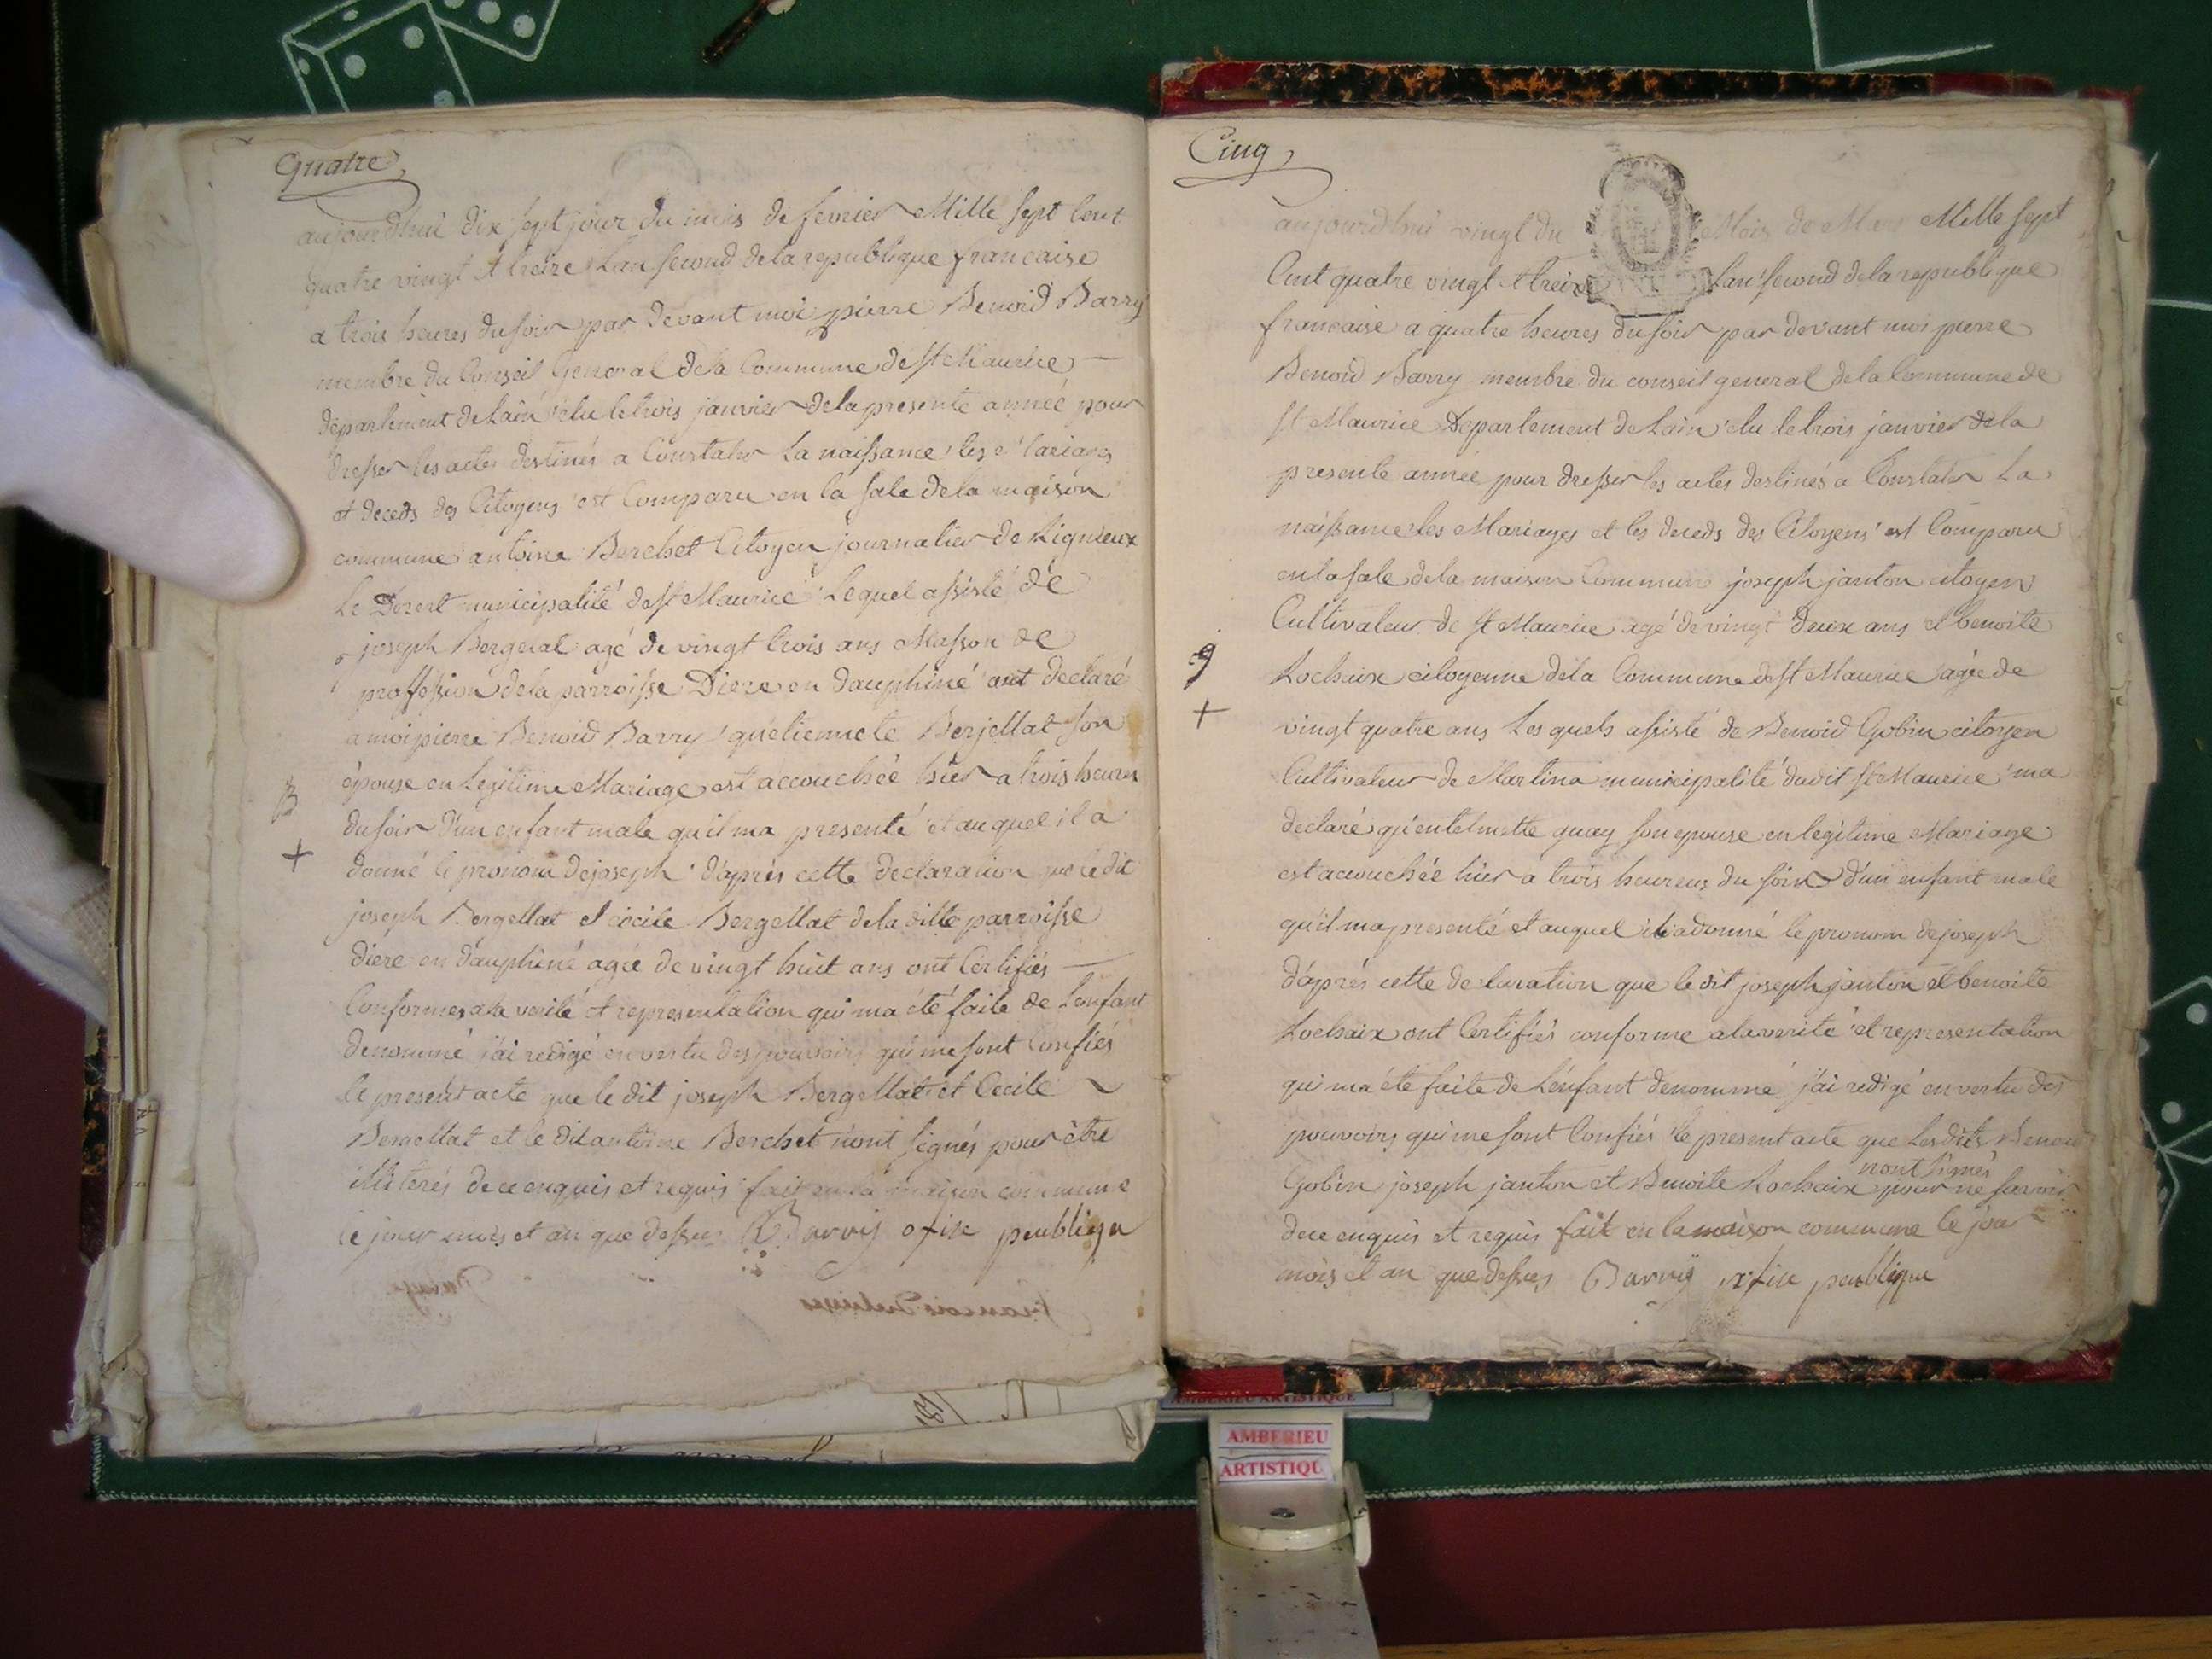 Quatre
aujourdhui dix sept jour du mois de fevrier Mille sept Cent
quatre vingt et treize Lan second dela republique francaise
a trois heures du soir par devant moi pierre Benoid Barry
membre du Conseil General dela Commune de St Maurice
département de Lain élu le trois janvier dela presente année pour
dresser les actes destinés a Constater La naissance les Mariages
et deceds des Citoyens est Comparu en la sale dela maison
commune antoine Berchet Citoyen journalier de Lignieux
Le Dezert municipalité de St Maurice Lequel assisté de
joseph Bergerat agé de vingt trois ans Masson de
proffession dela parroisse Diere en dauphiné ont declaré
a moi pierre Benoid Barry quétiennete Berjellat son
épouse en Legitime Mariage est accouchée hier a trois heures
du soir d'un enfant male qu'il ma presenté et auquel il a
donné le pronom de joseph d'aprés cette declaration que le dit
joseph Bergellat et cécile Bergellat dela ditte parroisse
diere en dauphiné agée de vingt huit ans ont Certifiés
Conformes a la verité et representation qui ma été faite de Lenfant
denommé j'ai redigé en vertu des pouvoirs qui me sont confiés
le present acte que le dit joseph Bergellat et Cécile
Bergellat et le dit antoine Berchet nont signés pour être
illiterés de ce enquis et requis fait en la maison commune
le jour mois et an que dessus Barry ofise peublique
B
+
Cinq
aujourdhui vingt du Mois de Mars Mille sept
Cent quatre vingt et treize Lan second dela republique
francaise a quatre heures du soir par devant moi pierre
Benoid Barry membre du conseil general dela Commune de
St Maurice Département de Lain elu le trois janvier dela
presente année pour dresser les actes destinés a Constater La
naissance les Mariages et les deceds des Citoyens est Comparu
en la sale dela maison Commune joseph janton citoyen
Cultivateur de St Maurice agé de vingt deux ans et benoite
Lochaix citoyenne dela Commune de St Maurice agée de
vingt quatre ans Les quels assisté de Benoid Gobin citoyen
Cultivateur de Martina municipalité dudit St Maurice ma
declaré quy son epouse en legitime Mariage
est accouchée hier a trois heureus du soir d'un enfant male
qu'il ma presenté et auquel il a donné le pronom de joseph
d'aprés cette declaration que le dit joseph janton et benoite
Lochaix ont Certifiés conforme a la verité et representation
qui ma été faite de Lenfant denommé j'ai redigé en vertu des
pouvoirs qui me sont Confiés le present acte que Lesdits Benoid
Gobin joseph janton et Benoite Lochaix nont signés pour ne savoir
de ce enquis et requis fait en la maison commune le jour
mois et an que dessus Barry ofise peublique
9
+
AMBERIEU ARTISTIQUE
AMBERIEU
ARTISTIQU